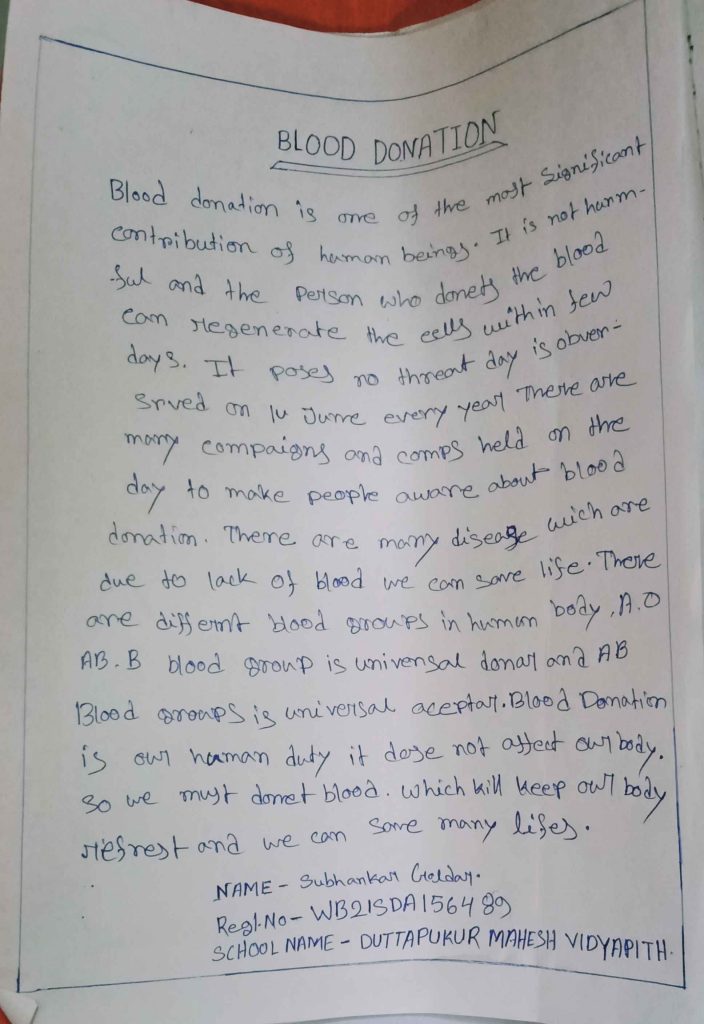 BLOOD DONATION
Blood donation is one of the most Significant
contribution of human beings. It is not harm-
ful and the person who donets the blood
can regenerate the cells within few
days. It poses no threat day is obver-
srved on 14 June every year There are
many compaigns and comps held on the
day to make people aware about blood
donation. There are many disease wich are
due to lack of blood we can save life. There
are differnt blood groups in human body, A.O
AB. B blood group is universal donar and AB
Blood groups is universal aceptar. Blood Donation
is our human duty it dose not affect our body.
So we must donet blood. Which kill keep our body
refrest and we can save many lifes.
NAME - Subhankar
Regl.No - WB21SDA156489
SCHOOL NAME - DUTTAPUKUR MAHESH VIDYAPITH.